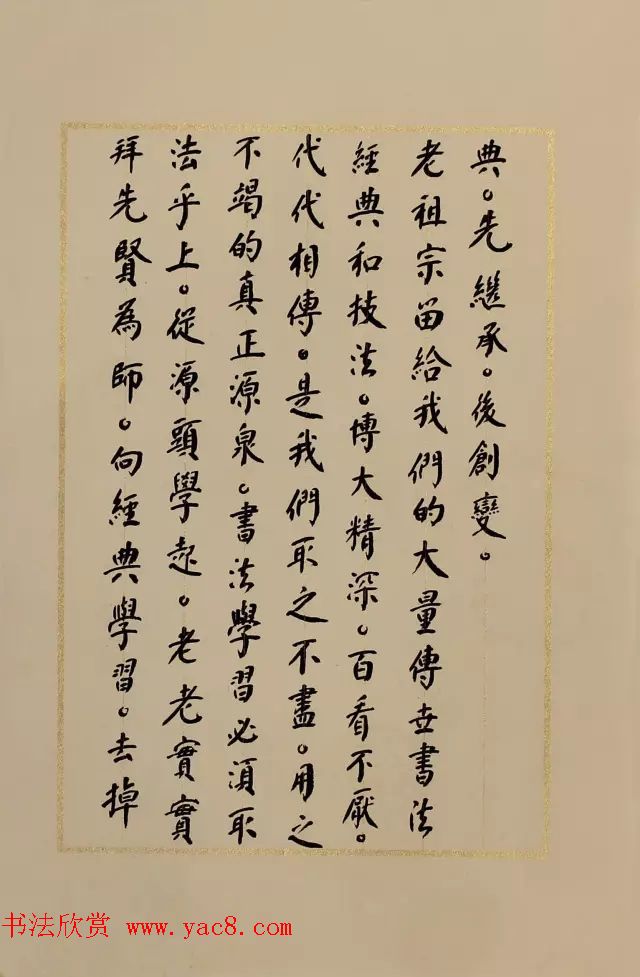 典。先繼承。後創變。
老祖宗留給我們的大量傳世書法
經典和技法。博大精深。百看不厭。
代代相傳。是我們取之不盡。用之
不竭的真正源泉。書法學習必須取
法乎上。從源頭學起。老老實實
拜先賢為師。向經典學習。去掉
书法欣赏 www.yac8.com